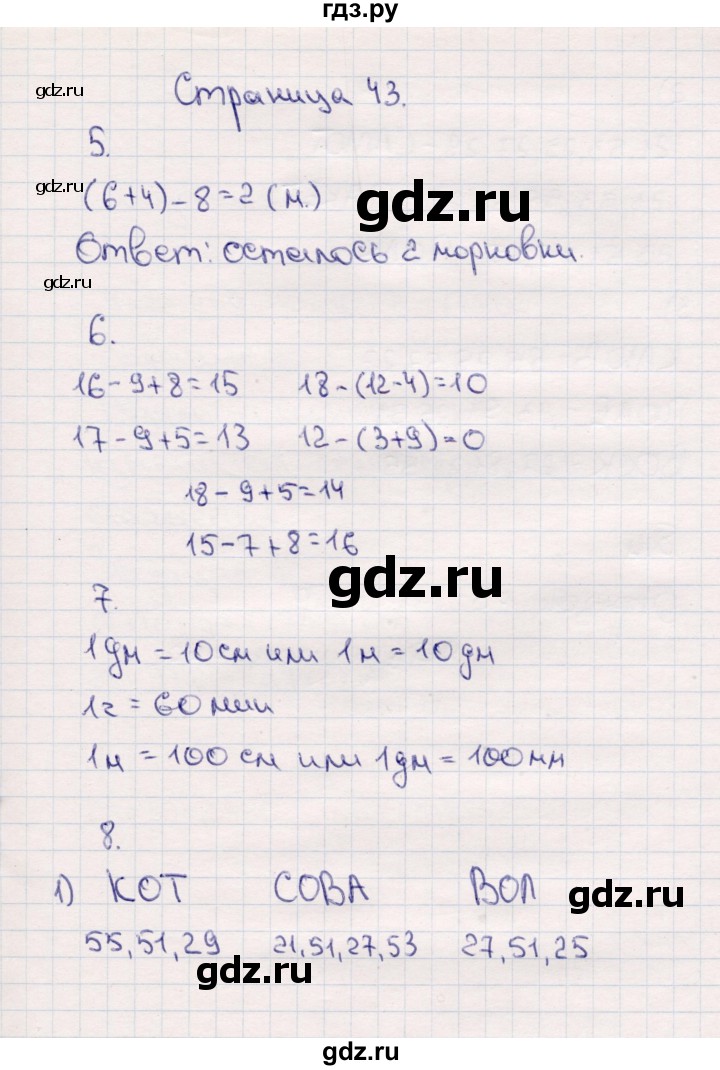 гдз.ру
gdz.ru
Страница 43.
5.
gdz.ru
(6+4)-8=2 (м.)
gdz.ru
Ответ: осталось 2 морковки.
gdz.ru
6.
16-9+8=15 18-(12-4)=10
17-9+5=13 12-(3+9)=0
18-9+5=14
15-7+8=16
gdz.ru
7.
1дм = 10см или 1м = 10дм
1ч = 60 мин
1м = 100 см или 1дм = 100мм
8.
1) КОТ СОВА ВОЛ
gdz.ru
55,51,29 21,51,27,53 27,51,25
gdz.ru
gdz.ru